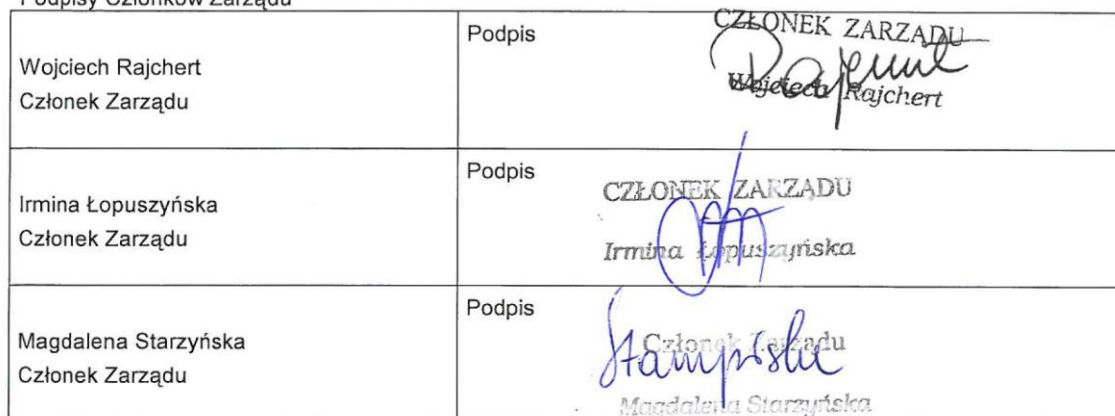 Podpisy Członków Zarządu
Wojciech Rajchert
Członek Zarządu
Podpis
CZŁONEK ZARZĄDU
Wojciech Rajchert
Irmina Łopuszyńska
Członek Zarządu
Podpis
CZŁONEK ZARZĄDU
Irmina Łopuszyńska
Magdalena Starzyńska
Członek Zarządu
Podpis
Członek Zarządu
Magdalena Starzyńska